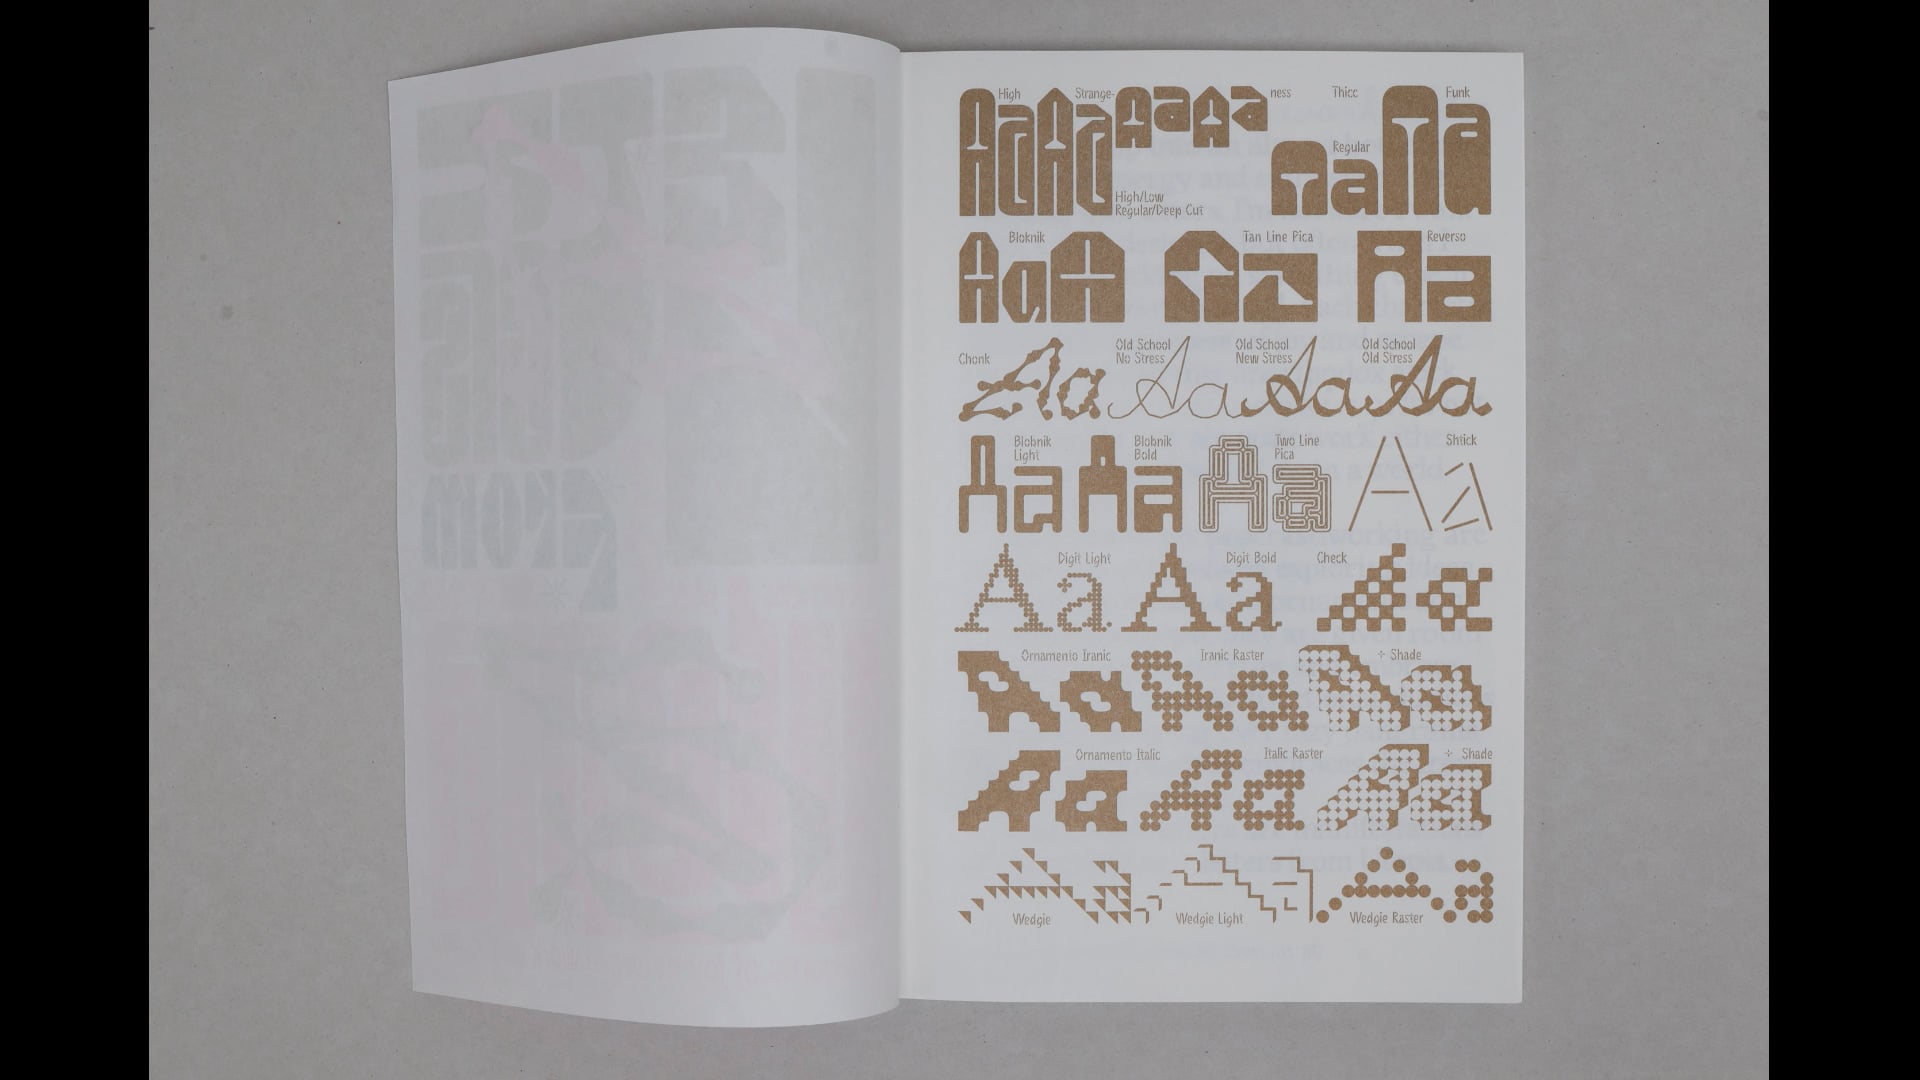 High Strange- ness Thicc Funk
Regular
High/Low
Regular/Deep Cut
Aa Aa Aa Aa Aa Aa
Bloknik Tan Line Pica Reverso
Aa A Aa Aa
Chonk Old School No Stress Old School New Stress Old School Old Stress
Aa Aa Aa Aa
Blobnik Light Blobnik Bold Two Line Pica Shtick
Aa Aa Aa Aa
Digit Light Digit Bold Check
Aa Aa Aa
Ornamento Iranic Iranic Raster + Shade
Aa Aa Aa
Ornamento Italic Italic Raster + Shade
Aa Aa Aa
Aa Aa Aa
Wedgie Wedgie Light Wedgie Raster